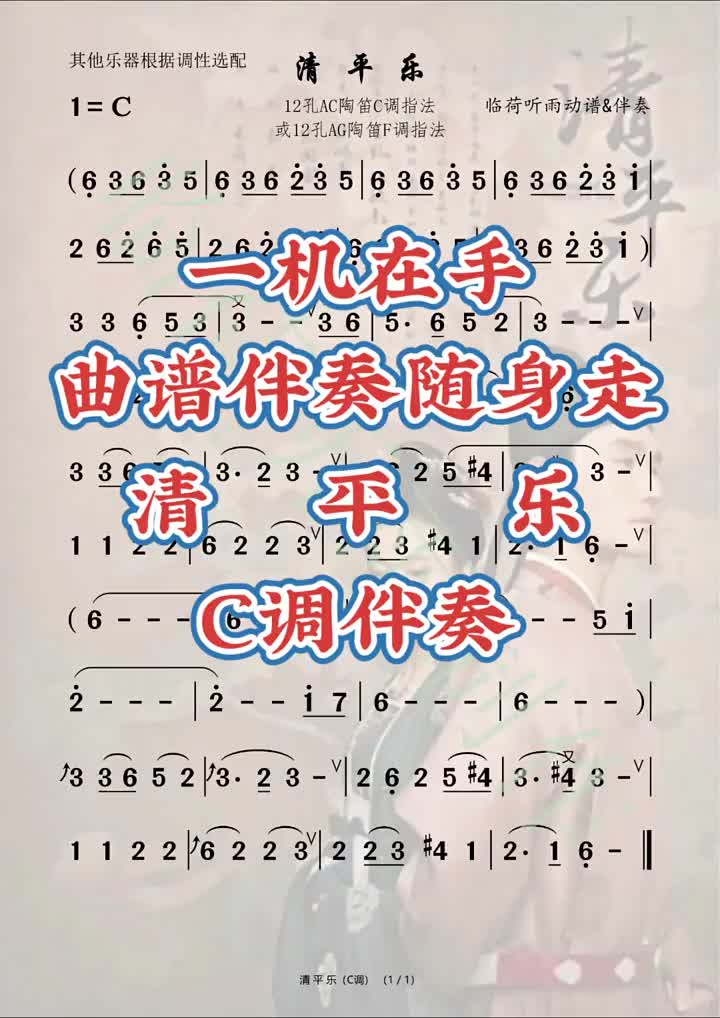 其他乐器根据调性选配
清 平 乐
1=C
12孔AC陶笛C调指法
或12孔AG陶笛F调指法
临荷听雨动谱&伴奏
清平乐
(6 3 6 3 5 | 6 3 6 2 3 5 | 6 3 6 3 5 | 6 3 6 2 3 1 |
2 6 2 6 5 | 2 6 2
6 2 3 1 ) |
一机在手
3 3 6 5 3 | 3 - - ∨ 3 6 | 5· 6 5 2 | 3 - - - ∨ |
曲谱伴奏随身走
3 3 6
| 3· 2 3 - ∨ |
2 5 #4 |
3 - ∨ |
清 平 乐
1 1 2 2 | 6 2 2 3 ∨ | 2 2 3 #4 1 | 2· 1 6 - ∨ |
( 6 - - -
- - 5 1 |
C调伴奏
2 - - - | 2 - - 1 7 | 6 - - - | 6 - - - ) |
3 3 6 5 2 | 3· 2 3 - ∨ | 2 6 2 5 #4 | 3· #4 又 3 - ∨ |
1 1 2 2 | 6 2 2 3 ∨ | 2 2 3 #4 1 | 2· 1 6 - ‖
清平乐(C调) (1/1)